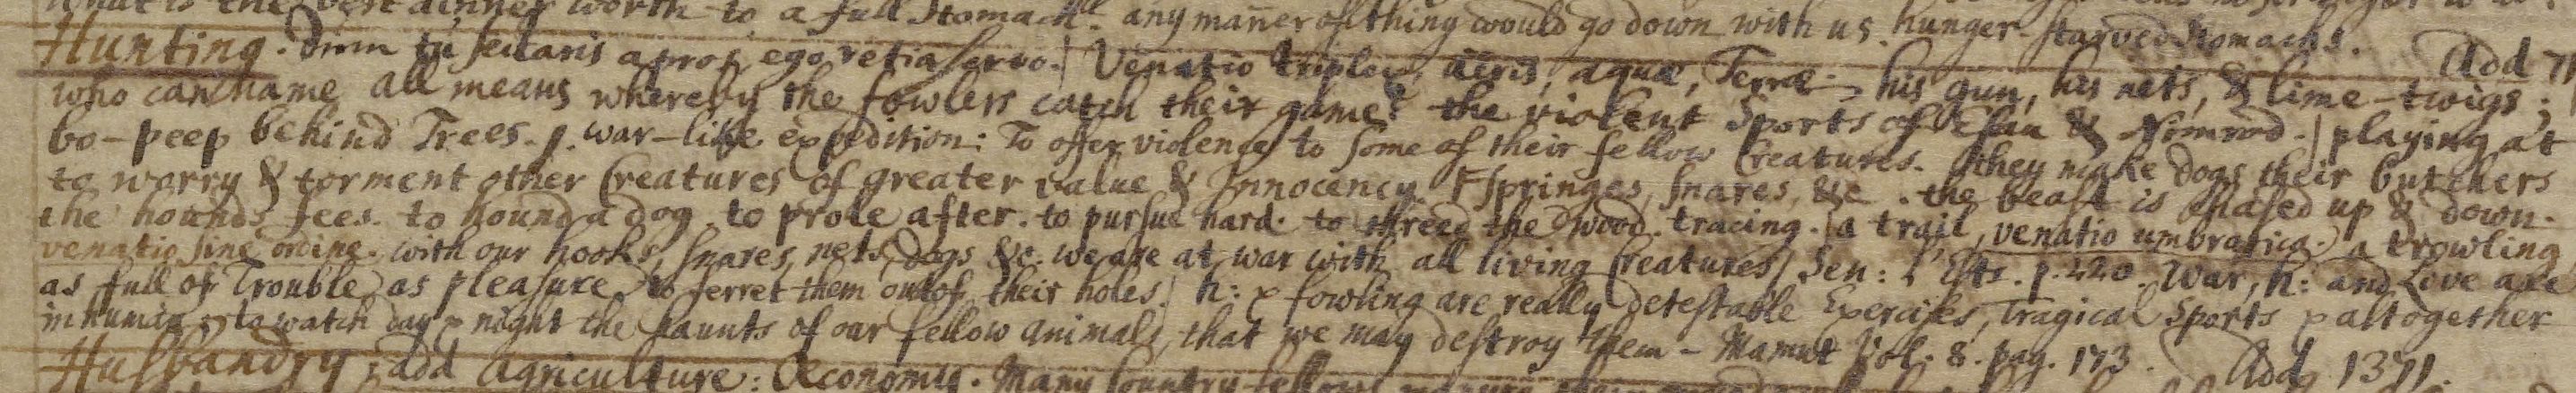 What is the best dinner worth to a full Stomach. any mañer of thing would go down with us. hunger-starved Stomachs.
Hunting. Dum tu sectaris apros, ego retia servo. | Venatio triplex, aëris, aquæ, Terræ. his gun, his nets, & lime-twigs; Add
who can name all means whereby the fowlers catch their game? the violent Sports of Esau & Nimrod. | playing at
bo-peep behind Trees. war-like expedition: To offer violence to some of their fellow Creatures. they make dogs their butchers
to worry & torment other Creatures of greater value & Innocency. springes, snares, &c. the beast is chased up & down.
the hounds fees. to hound a dog. to prole after. to pursue hard. to threed the wood. tracing. a trail, venatio umbratica. a trowling
venatio sine ordine. with our hooks, snares, nets, dogs &c. we are at war with all living Creatures / Sen: p. 220. War, h: and Love are
as full of Trouble as pleasure. to ferret them out of their holes. | h: & fowling are really detestable Exercises, Tragical Sports & altogether
inhuman; to watch day & night the haunts of our fellow animals, that we may destroy them - Marmt Vol. 8. pag. 173. Add 1371.
Husbandry; add Agriculture: Œconomy. Many Country fellows